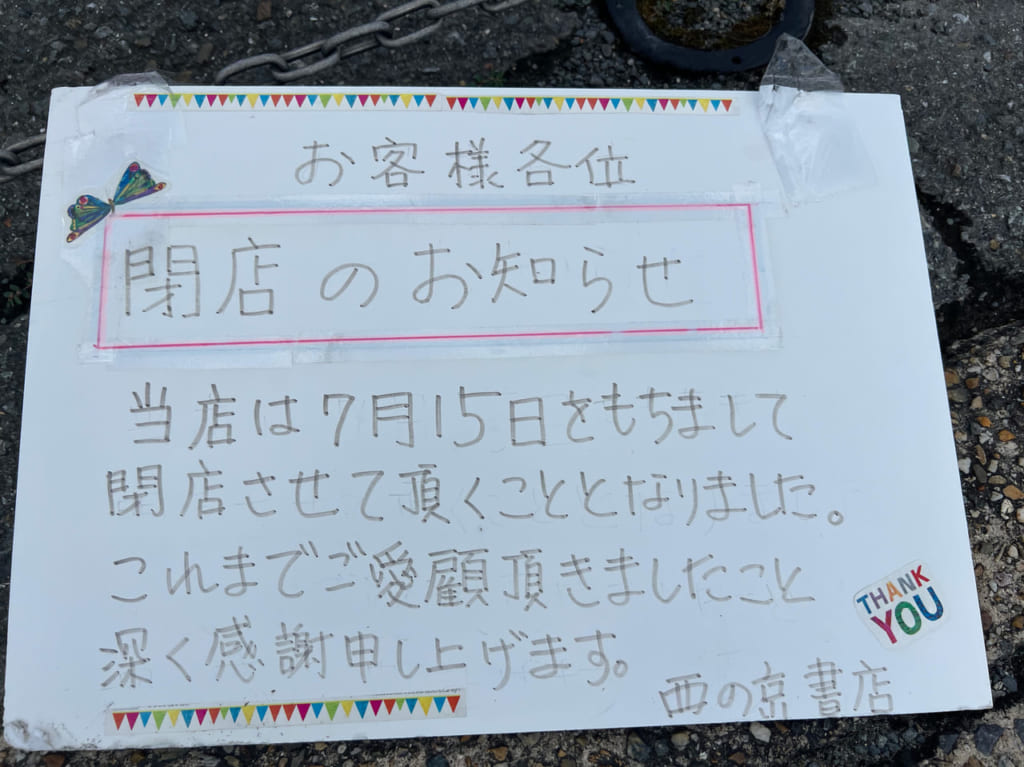 お客様各位
閉店のお知らせ
当店は7月15日をもちまして
閉店させて頂くこととなりました。
これまでご愛顧頂きましたこと
深く感謝申し上げます。
THANK
YOU
西の京書店